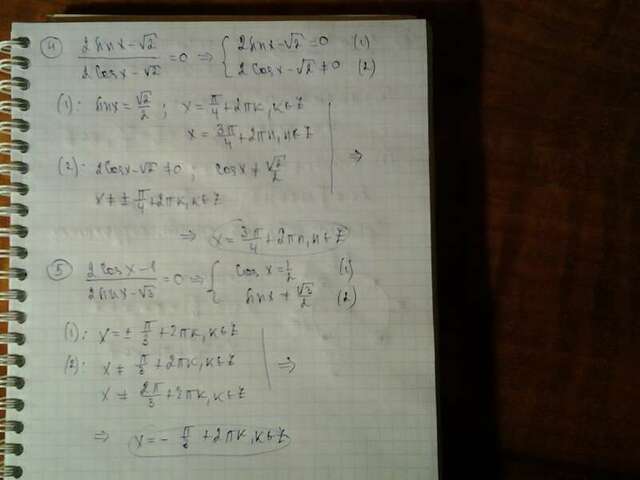 4 (2sinx-√2)/(2cosx-√2) =0 ⇒ { 2sinx-√2=0 (1)
2cosx-√2≠0 (2)
(1): sinx=√2/2; x=π/4+2πk, k∈Z
x=3π/4+2πn, n∈Z
(2): 2cosx-√2≠0; cosx≠√2/2 ⇒
x≠±π/4+2πk, k∈Z
⇒ x=3π/4+2πn, n∈Z
5 (2cosx-1)/(2sinx-√3) =0 ⇒ { cosx=1/2 (1)
sinx≠√3/2 (2)
(1): x=±π/3+2πk, k∈Z
(2): x≠π/3+2πk, k∈Z ⇒
x≠2π/3+2πk, k∈Z
⇒ x=-π/3+2πk, k∈Z